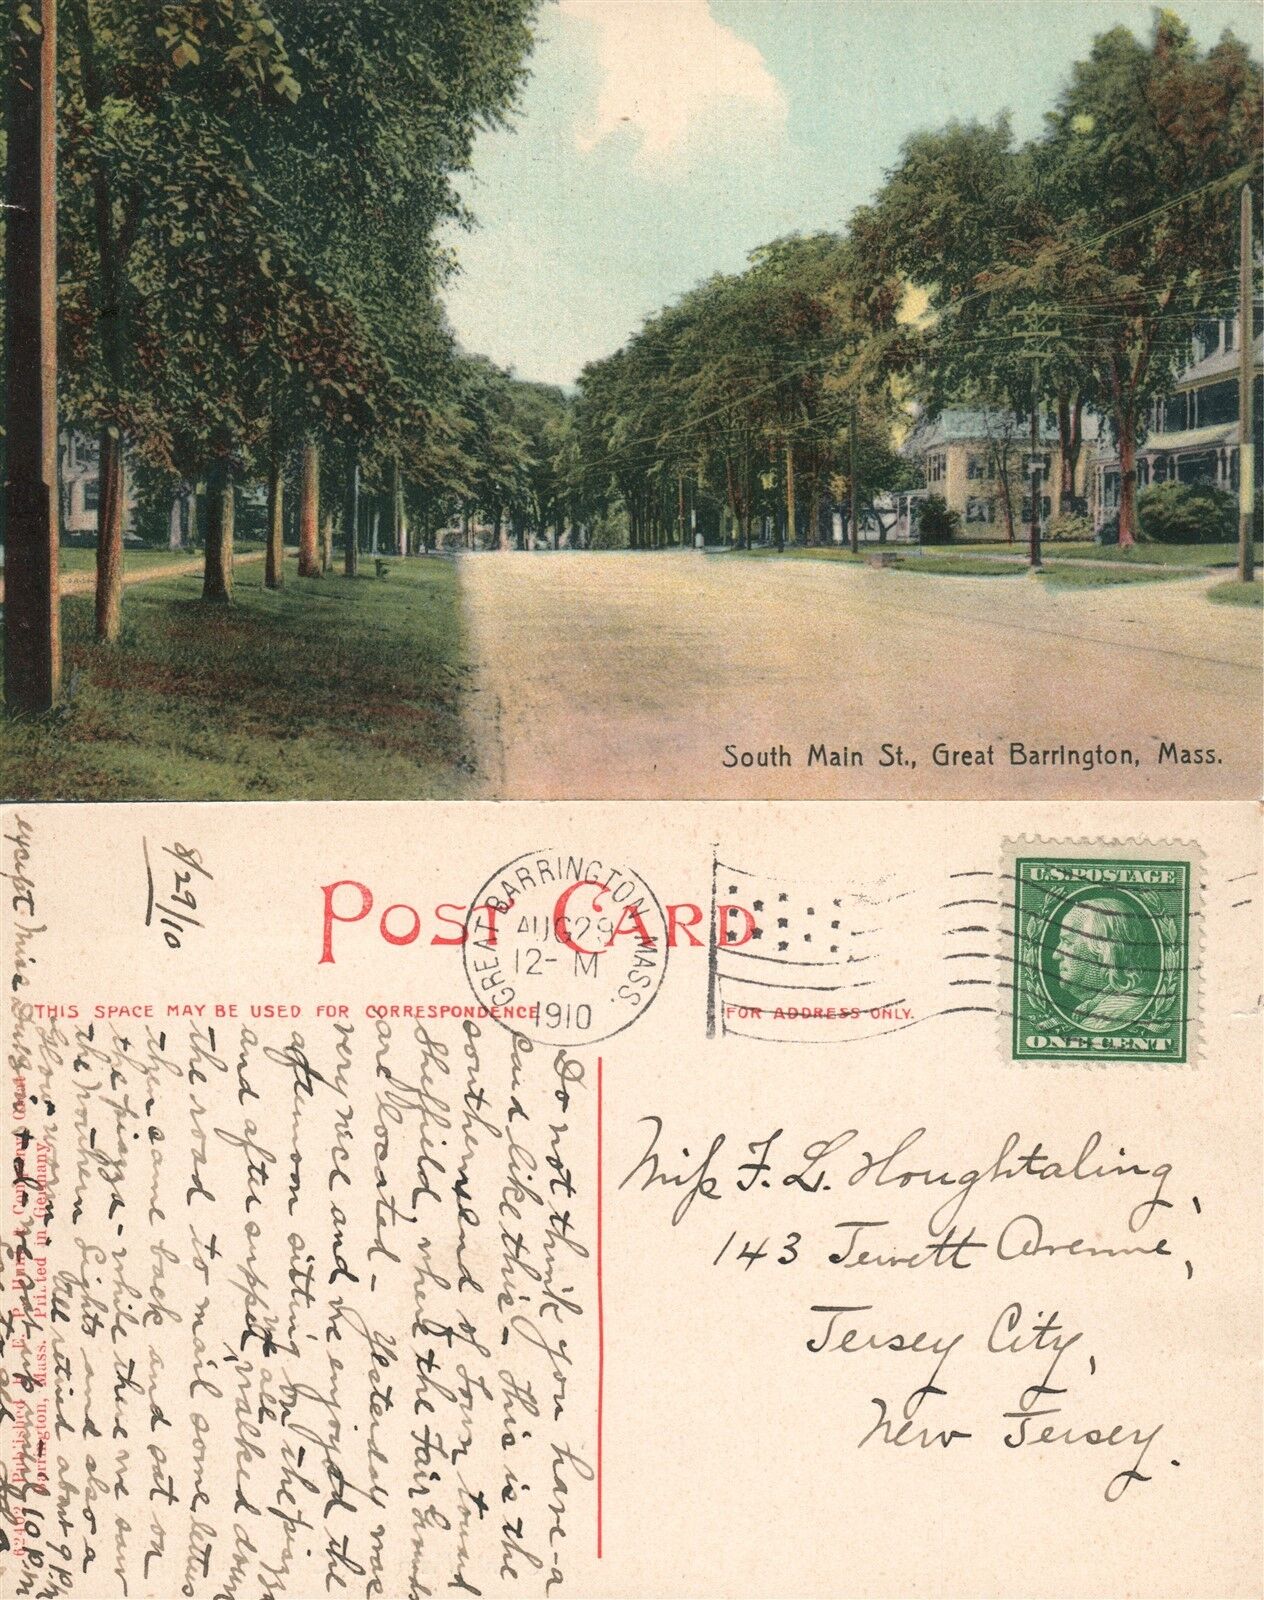 South Main St., Great Barrington, Mass.
8/29/10
POST CARD
GREAT BARRINGTON, MASS.
AUG 29
12-M
1910
U.S. POSTAGE
ONE CENT
THIS SPACE MAY BE USED FOR CORRESPONDENCE
FOR ADDRESS ONLY.
Do not think you have a
card like this - This is the
southern end of Town toward
Sheffield, where the Fair Grounds
are located - Yesterday was
very nice and we enjoyed the
afternoon sitting on the piazza
and after supper we all walked down
the road to mail some letters
then came back and sat on
the piazza - while there we saw
the Northern Lights and also a
Glow-worm. All retired about 9 P.M
except Miss & I. we sat up until 10 P.M
Love to all
Miss F. L. Houghtaling,
143 Jewett Avenue,
Jersey City,
New Jersey.
Barrington, Mass. Printed in Germany